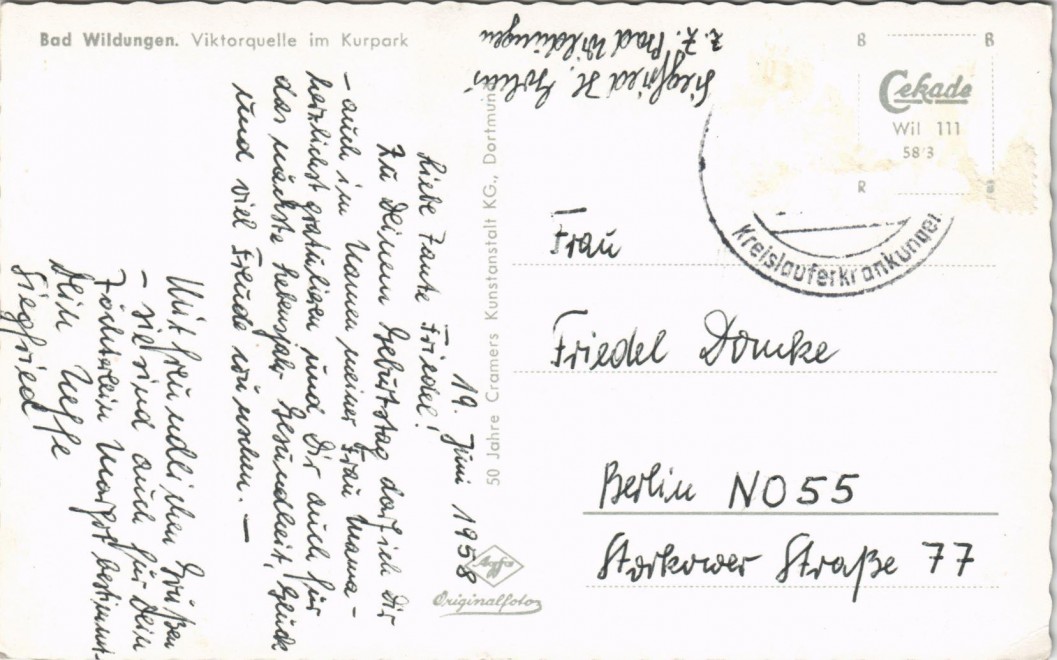 Bad Wildungen. Viktorquelle im Kurpark
Siegfried H.
z. Z. Bad Wildungen
19. Juni 1958
Liebe Tante Friedel!
Zu Deinem Geburtstag darf ich Dir
- auch im Namen meiner Frau Mama -
herzlichst gratulieren und Dir auch für
das nächste Lebensjahr Gesundheit, Glück
und viel Freude wünschen. -
Mit freundlichen Grüßen
- sie sind auch für Dein
Töchterlein Margot bestimmt -
Dein Neffe
Siegfried
50 Jahre Cramers Kunstanstalt KG., Dortmund
Agfa
Originalfoto
B B
Cekade
Wil 111
58/3
R
Kreislauferkrankungen
Frau
Friedel Domke
Berlin NO55
Storkower Straße 77